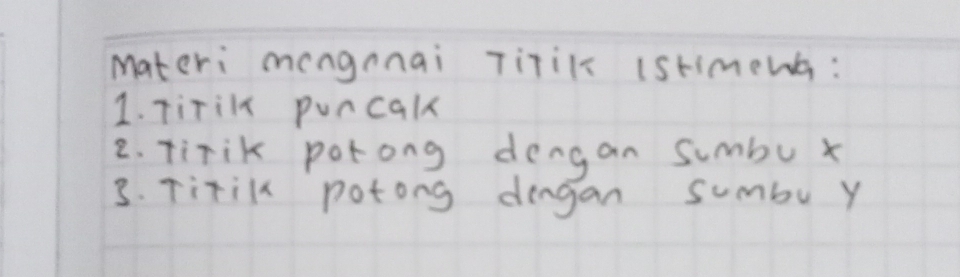 Materi mengenai Titik Istimewa:
1. Titik puncak
2. Titik potong dengan sumbu x
3. Titik potong dengan sumbu y